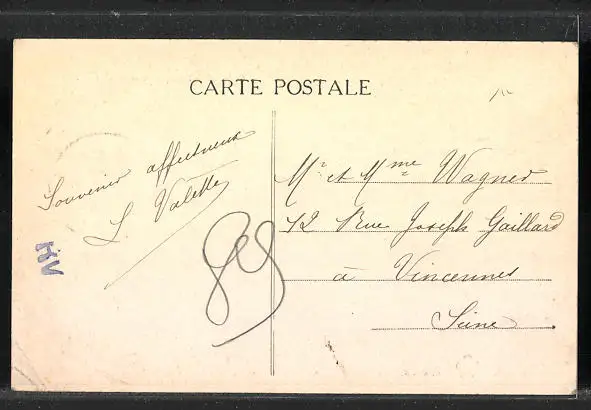 CARTE POSTALE
Souvenir affectueux
L Valette
HV
Mr et Mme Wagner
12 Rue Joseph Gaillard
à Vincennes
Seine